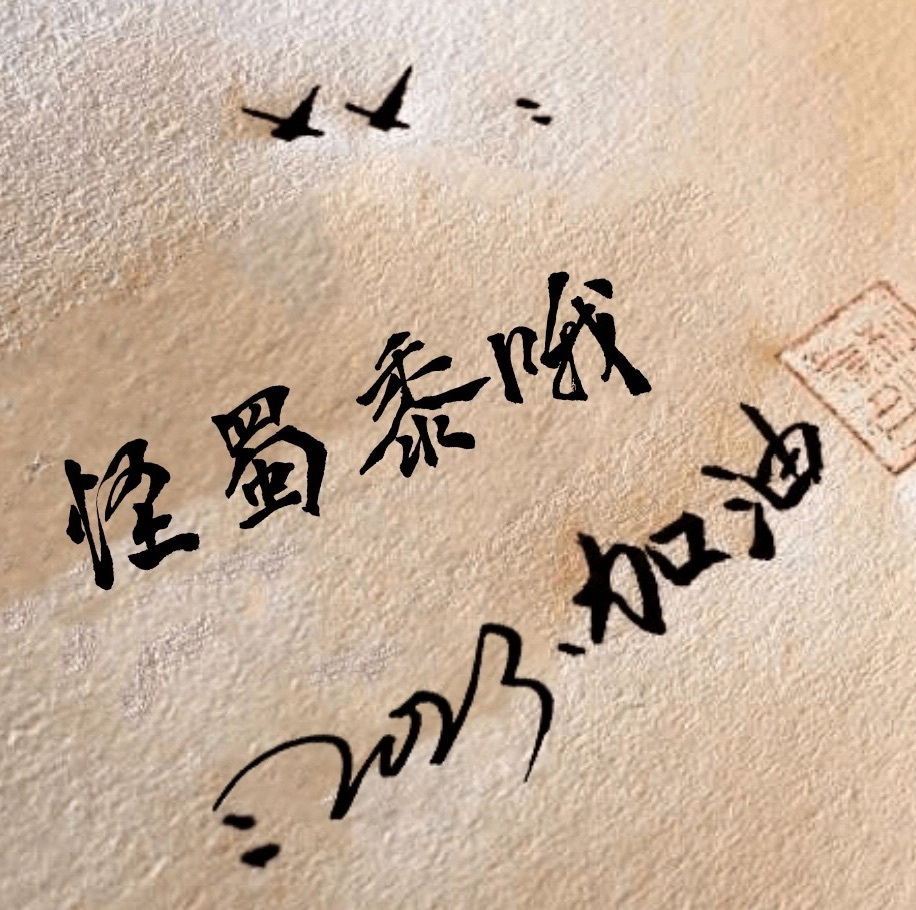 怪蜀黍哦
2023.加油